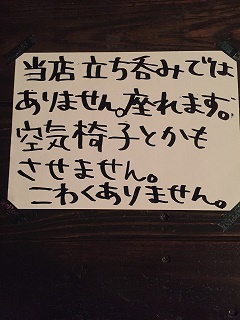 当店立ち呑みでは
ありません。座れます。
空気椅子とかも
させません。
こわくありません。